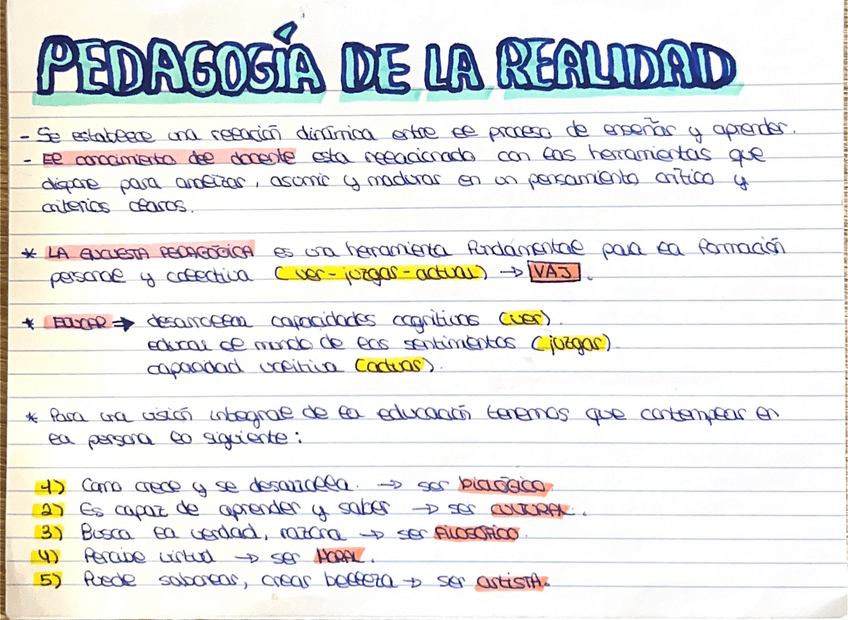 PEDAGOGÍA DE LA REALIDAD
- Se establece una relación dinámica entre el proceso de enseñar y aprender.
- El conocimiento del docente esta relacionado con las herramientas que
dispone para analizar, asumir y madurar en un pensamiento crítico y
criterios claros.
* LA ENCUESTA PEDAGÓGICA es una herramienta fundamental para la formación
personal y colectiva (ver-juzgar-actuar) → VAJ.
* EDUCAR → desarrollar capacidades cognitivas (ver).
educar el mundo de los sentimientos (juzgar)
capacidad volitiva (actuar).
* Para una visión integral de la educación tenemos que contemplar en
la persona lo siguiente:
1) Como crece y se desarrolla. → ser BIOLÓGICO.
2) Es capaz de aprender y saber → ser CULTURAL.
3) Busca la verdad, razona → ser FILOSÓFICO.
4) Percibe virtud → ser MORAL.
5) Puede saborear, crear belleza → ser ARTISTA.